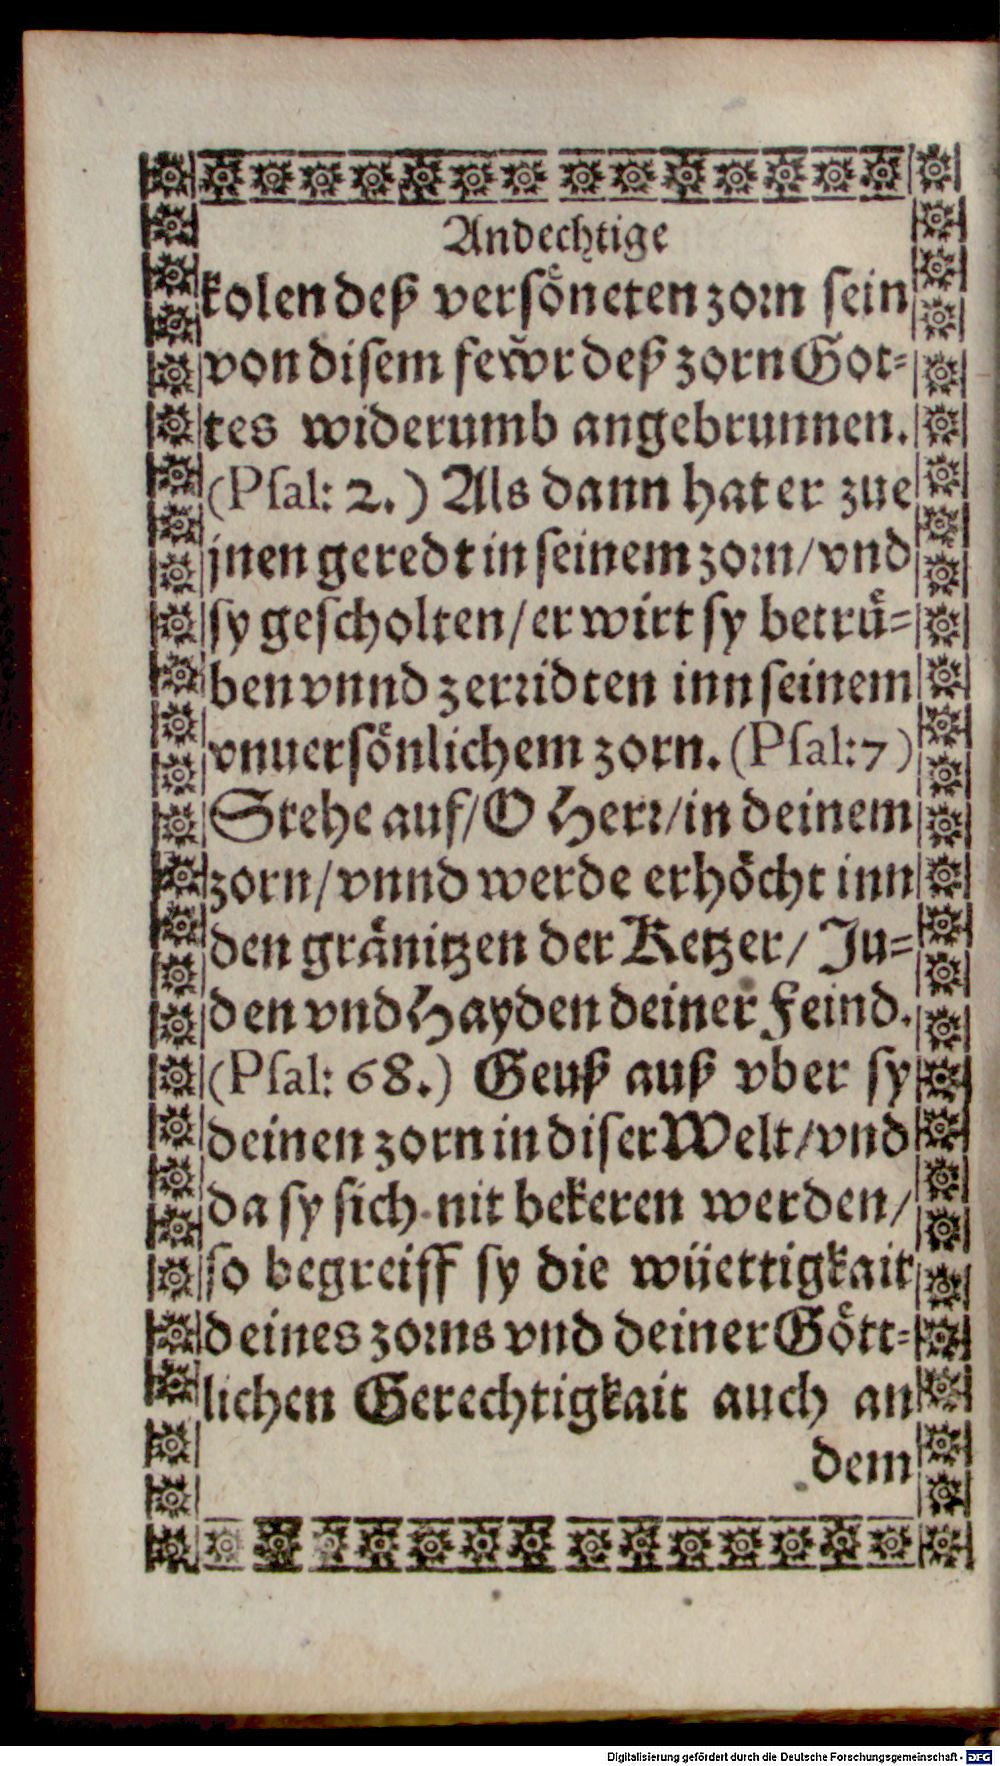 Andechtige
kolen deß versöneten zorn sein
von disem fewr deß zorn Got-
tes widerumb angebrunnen.
(Psal: 2.) Als dann hat er zue
jnen geredt in seinem zorn/vnd
sy gescholten/er wirt sy betrü-
ben vnnd zerridten inn seinem
vnuersönlichem zorn. (Psal:7)
Stehe auf/O Herr/in deinem
zorn/vnnd werde erhöcht inn
den gränitzen der Ketzer/ Ju-
den vnd Hayden deiner Feind.
(Psal: 68.) Geuß auß vber sy
deinen zorn in diser Welt/vnd
da sy sich nit bekeren werden/
so begreiff sy die wüettigkait
deines zorns vnd deiner Gött-
lichen Gerechtigkait auch an
dem
Digitalisierung gefördert durch die Deutsche Forschungsgemeinschaft - DFG